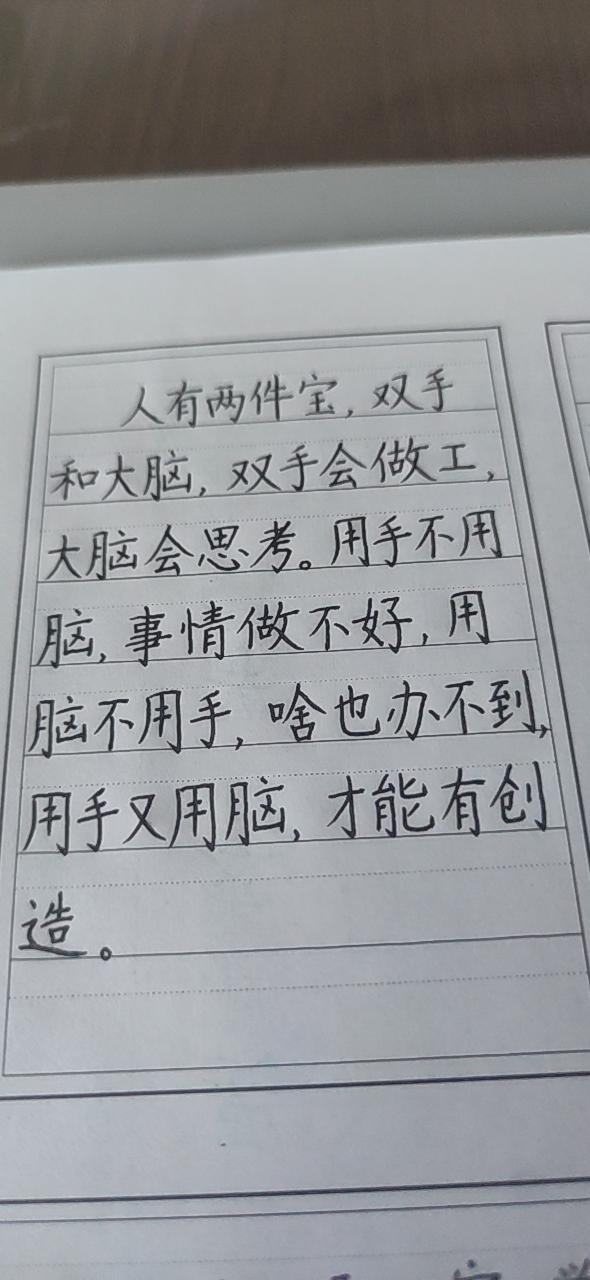 人有两件宝,双手
和大脑,双手会做工,
大脑会思考。用手不用
脑,事情做不好,用
脑不用手,啥也办不到,
用手又用脑,才能有创
造。